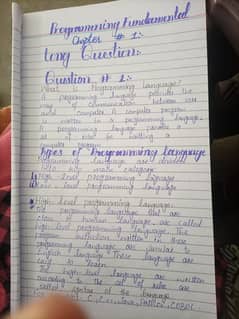 Programming Fundamental
Chapter # 1:-
Long Question:
Question # 1:-
What is Programming language?
A programming language provides the
way of communication between user
and computer. A computer program
is written in a programming language.
A programming language provides a
set of rules for writing a
computer program.
Types of Programming Language
Programming language are divided
into two main category
High-level programming language
Low-level programming language
High-level programming language:
The programming language that are
close to human language are called
high level programming language. The
instruction written in these
programming language are similar to
English language. These language are
easy to learn.
The high-level language are written
according to the set of rules are
called syntax of the language.
C, C++, Java, Pascal, COBOL